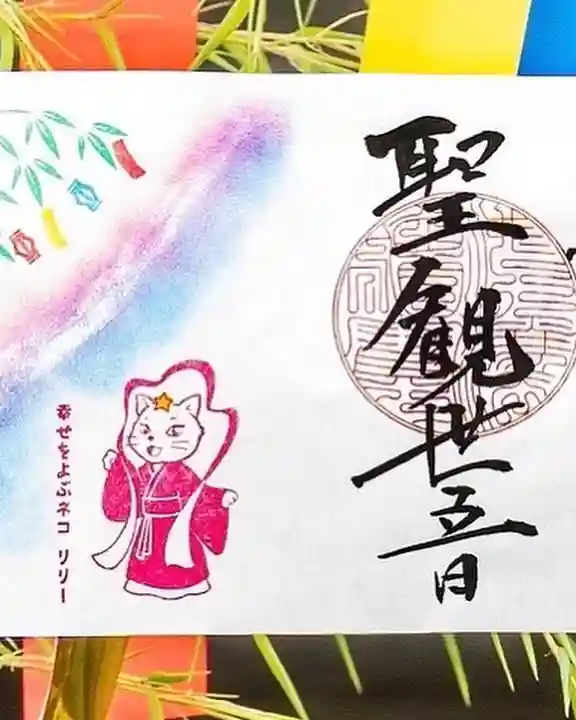 聖観世音
幸せをよぶネコ リリー